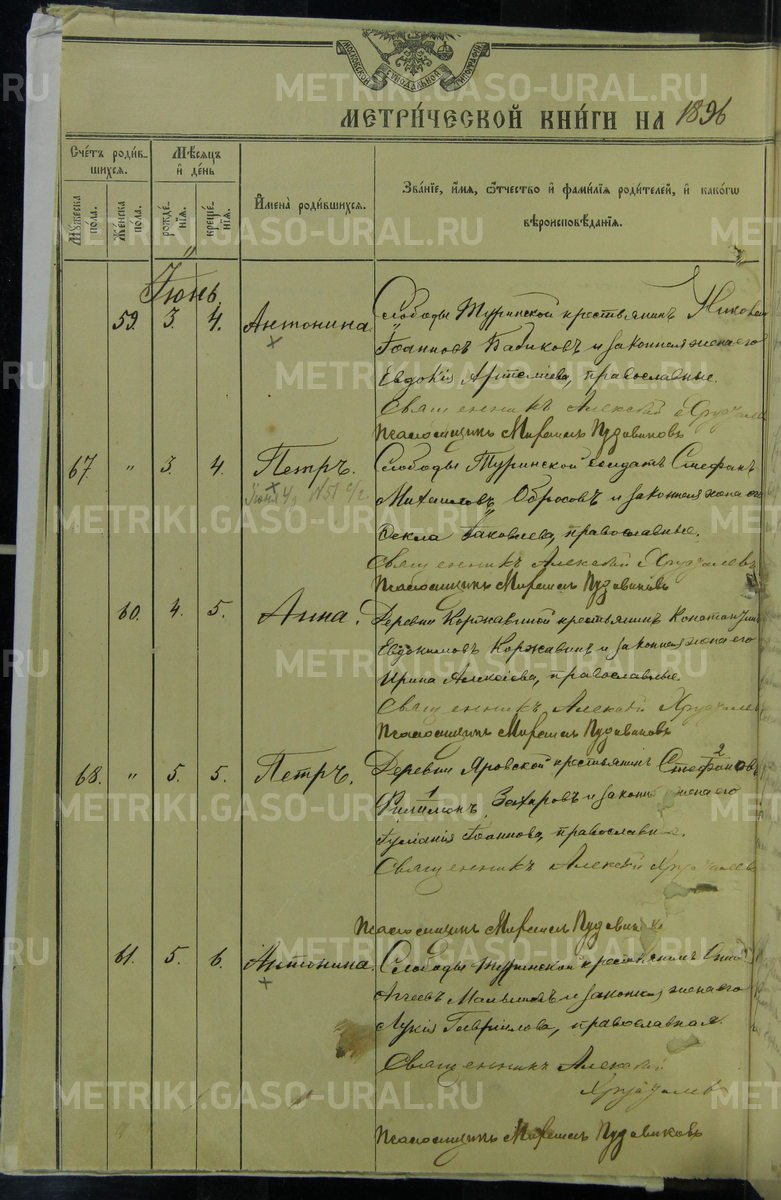 МОСКОВСКОЙ СѴНОДАЛЬНОЙ ТИПОГРАФІИ
METRIKI.GASO-URAL.RU
МЕТРИ́ЧЕСКОЙ КНИ́ГИ НА 1896
Сче́тъ роди́вшихся.
Мꙋжеска по́ла.
Же́нска по́ла.
Мѣ́сяцъ и҆ де́нь
рожде́нїя.
креще́нїя.
И҆мена̀ роди́вшихся.
Зва́нїе, и҆́мя, ѻ҆́тчество и҆ фами́лїя роди́телей, и҆ како́гѡ вѣроисповѣ́данїя.
Іюнь.
59. 3. 4. Антонина. Слободы Туринской крестьянинъ Николай
Іоанновъ Бабиковъ и законная жена его
Евдокія Артеміева, православные.
Священникъ Алексій
Псаломщикъ Пудовиковъ
67. " 3. 4. Петръ. Слободы Туринской солдатъ Стефанъ
Михаиловъ Обросовъ и законная жена его
Ѳекла Іаковлева, православные.
Священникъ Алексій
Псаломщикъ Пудовиковъ
60. 4. 5. Анна. Деревни Коржавиной крестьянинъ Константинъ
Евдокимовъ Коржавинъ и законная жена его
Ирина Алексіева, православные.
Священникъ Алексій
Псаломщикъ Пудовиковъ
68. " 5. 5. Петръ. Деревни Яровской крестьянинъ 2 Стефановъ
1 Филимонъ Захаровъ и законная жена его
Іуліанія Іоаннова, православные.
Священникъ Алексій
Псаломщикъ Пудовиковъ
61. 5. 6. Антонина. Слободы Туринской крестьянинъ
и законная жена его
Лукія Гавриилова, православная.
Священникъ Алексій
Псаломщикъ Пудовиковъ